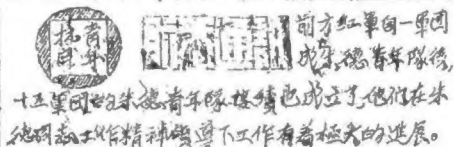 青年
抗日
前方红軍自一軍团
成立朱德青年隊後,
十五軍团的朱德青年隊接續也成立了,他们在朱
德同志工作精神領導下工作有着極大的進展。